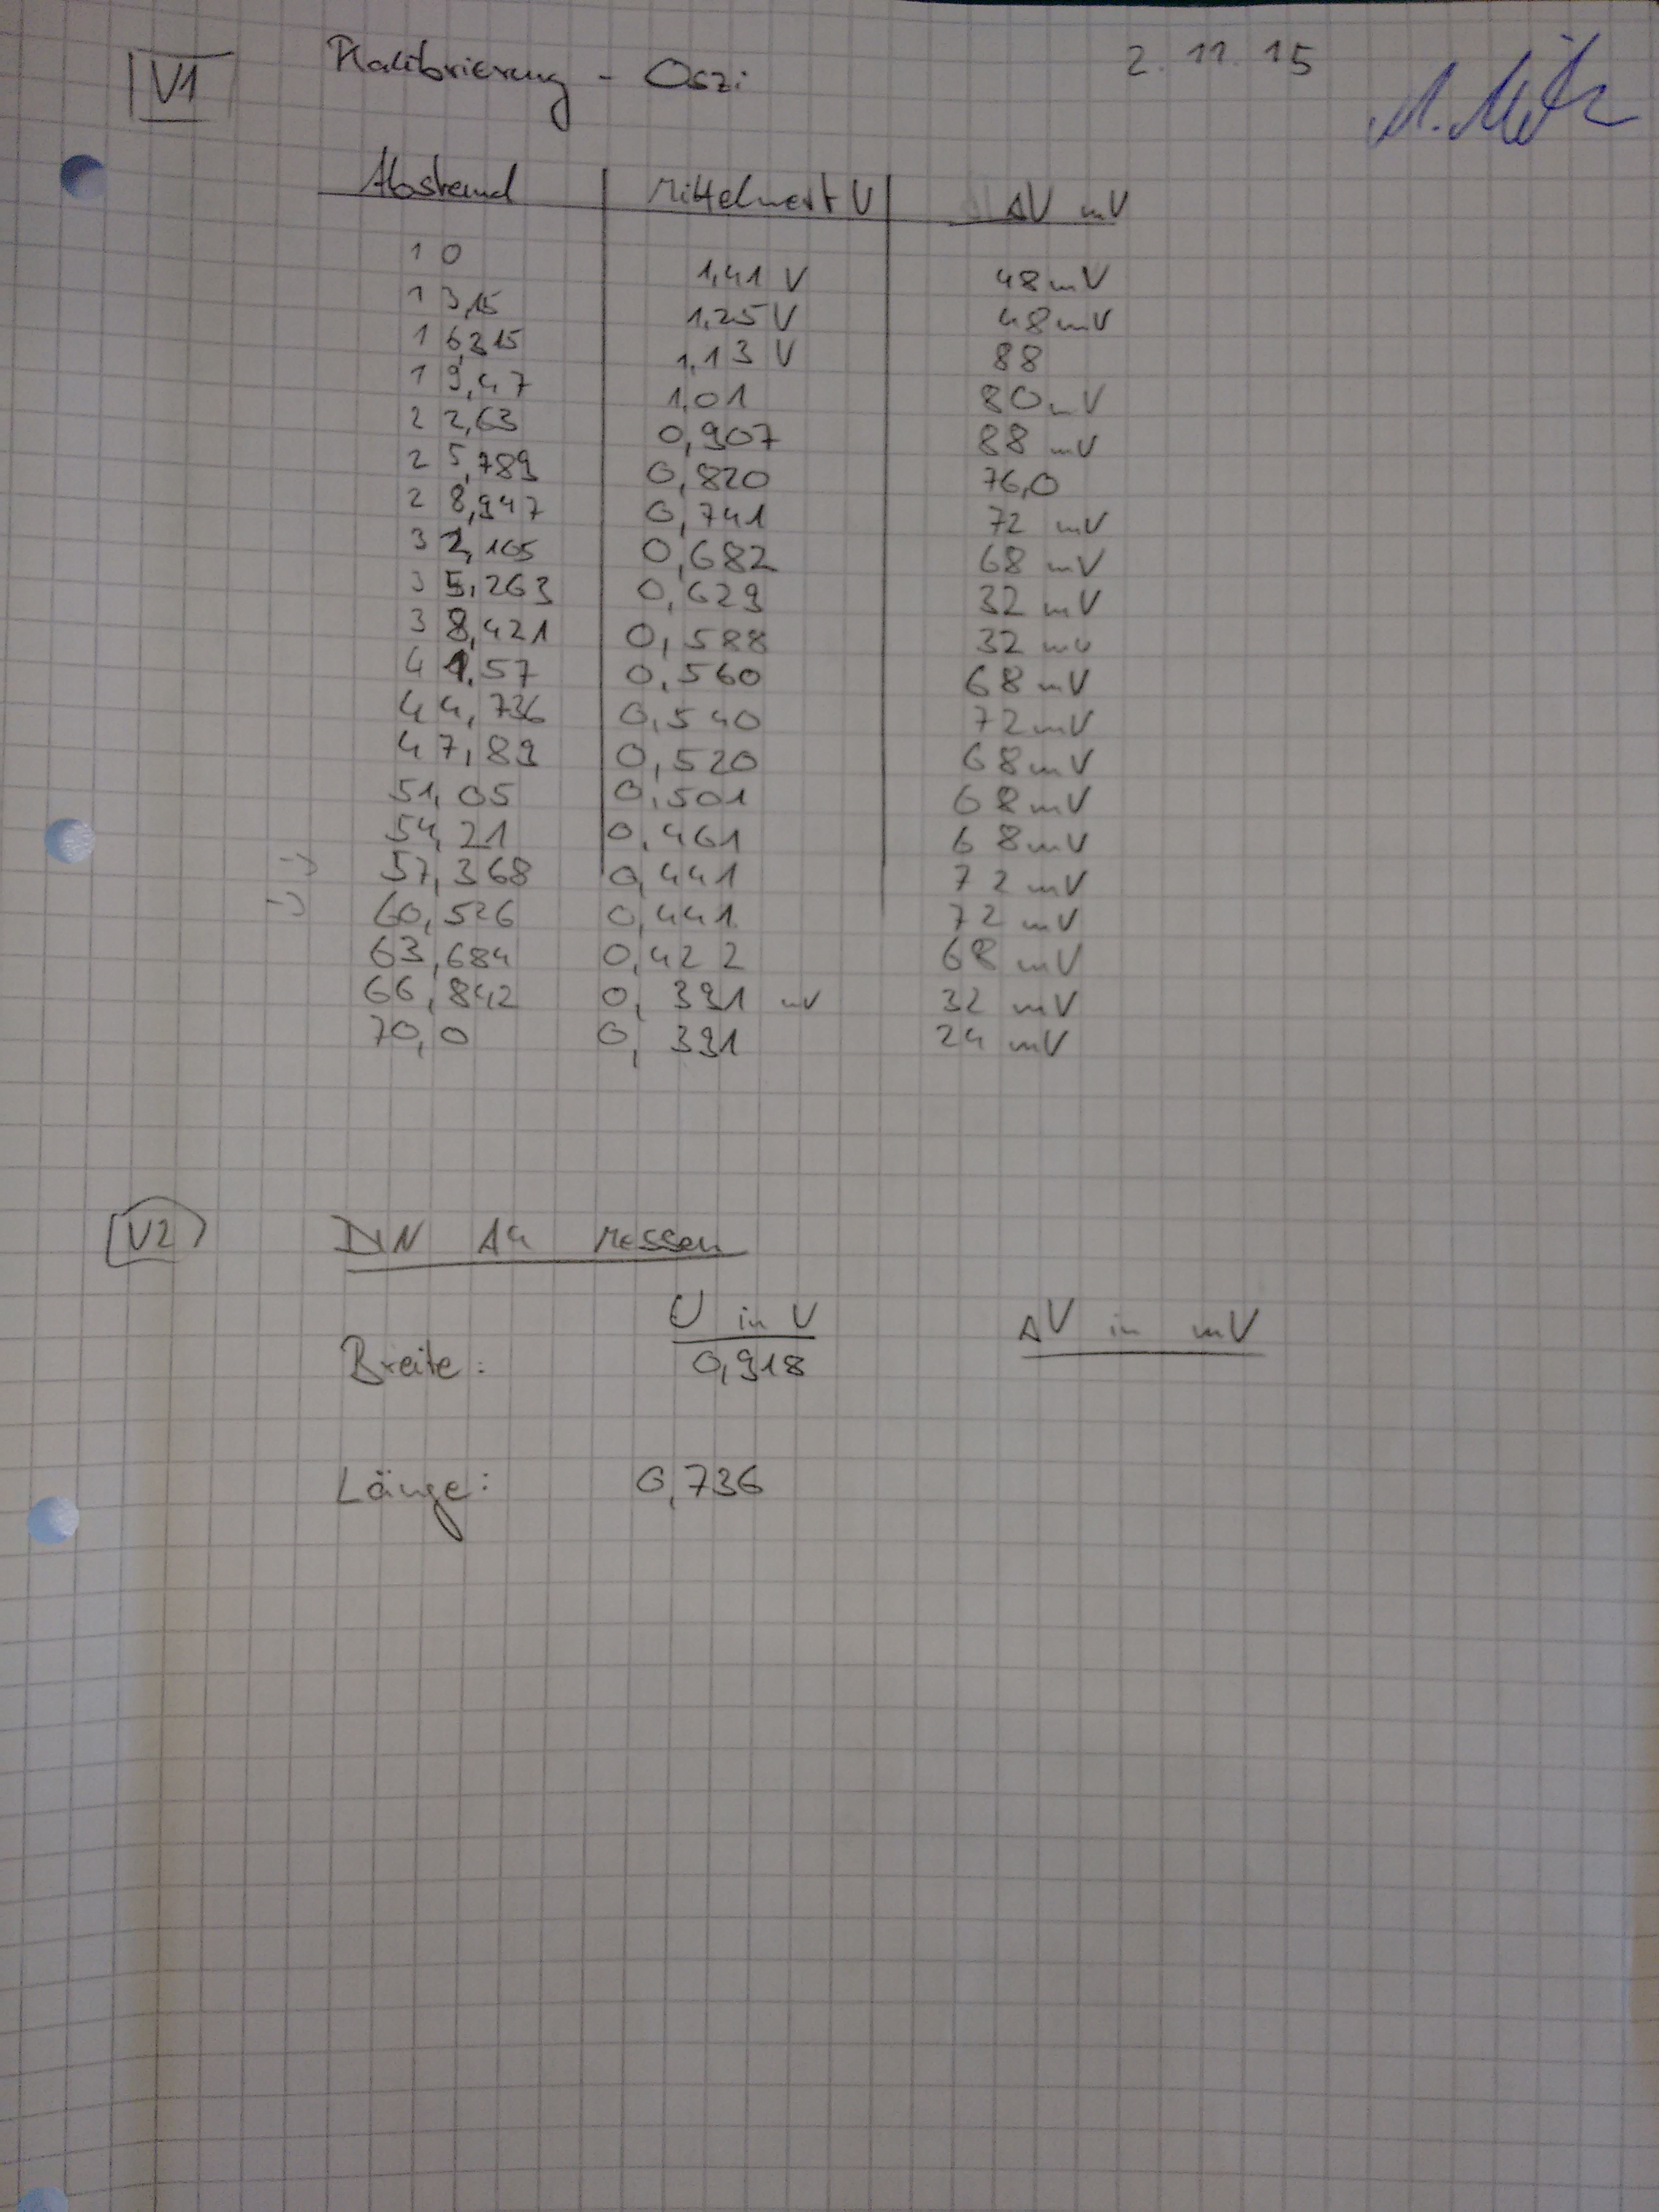 V1 Kalibrierung - Oszi 2.11.15
Abstand Mittelwert V ΔV mV
10 1,41 V 48 mV
13,15 1,25 V 48 mV
16,315 1,13 V 88
19,47 1,01 80 mV
22,63 0,907 88 mV
25,789 0,820 76,0
28,947 0,741 72 mV
32,105 0,682 68 mV
35,263 0,629 32 mV
38,421 0,588 32 mV
41,57 0,560 68 mV
44,736 0,540 72 mV
47,89 0,520 68 mV
51,05 0,501 68 mV
54,21 0,461 68 mV
57,368 0,441 72 mV
60,526 0,441 72 mV
63,684 0,422 68 mV
66,842 0,391 mV 32 mV
70,0 0,391 24 mV
V2 DIN A4 Messen
U in V ΔV in mV
Breite: 0,918
Länge: 0,736